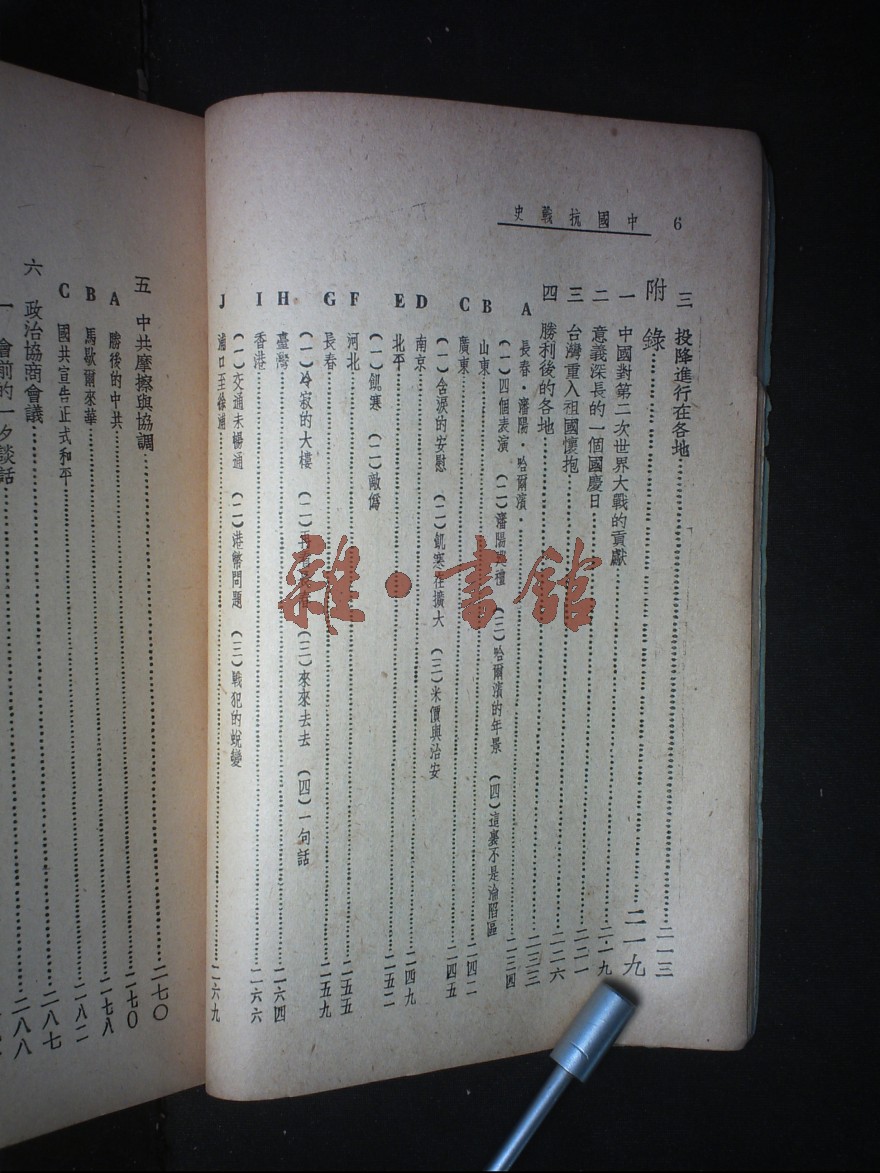 6 中國抗戰史
三 投降進行在各地……二一三
附錄……二一九
一 中國對第二次世界大戰的貢獻……二·一九
二 意義深長的一個國慶日……二二一
三 台灣重入祖國懷抱……二二六
四 勝利後的各地……二三三
A 長春·瀋陽·哈爾濱……二三四
(一)四個表演 (二)瀋陽種 (三)哈爾濱的年景 (四)這裏不是淪陷區
B 山東……二四二
C 廣東……二四五
(一)含淚的安慰 (二)飢寒在擴大 (三)米價與治安
D 南京……二四九
E 北平……二五二
(一)飢寒 (二)敵僞
F 河北……二五五
G 長春……二五九
(一)冷寂的大樓 (二) (三)來來去去 (四)一句話
H 臺灣……二六四
I 香港……二六六
(一)交通未暢通 (二)港幣問題 (三)戰犯的蛻變
J 浦口至徐……二六九
五 中共摩擦與協調……二七〇
A 勝後的中共……二七〇
B 馬歇爾來華……二七八
C 國共宣告正式和平……二八二
六 政治協商會議……二八七
一 會前的一夕談話……二八八
雜·書館